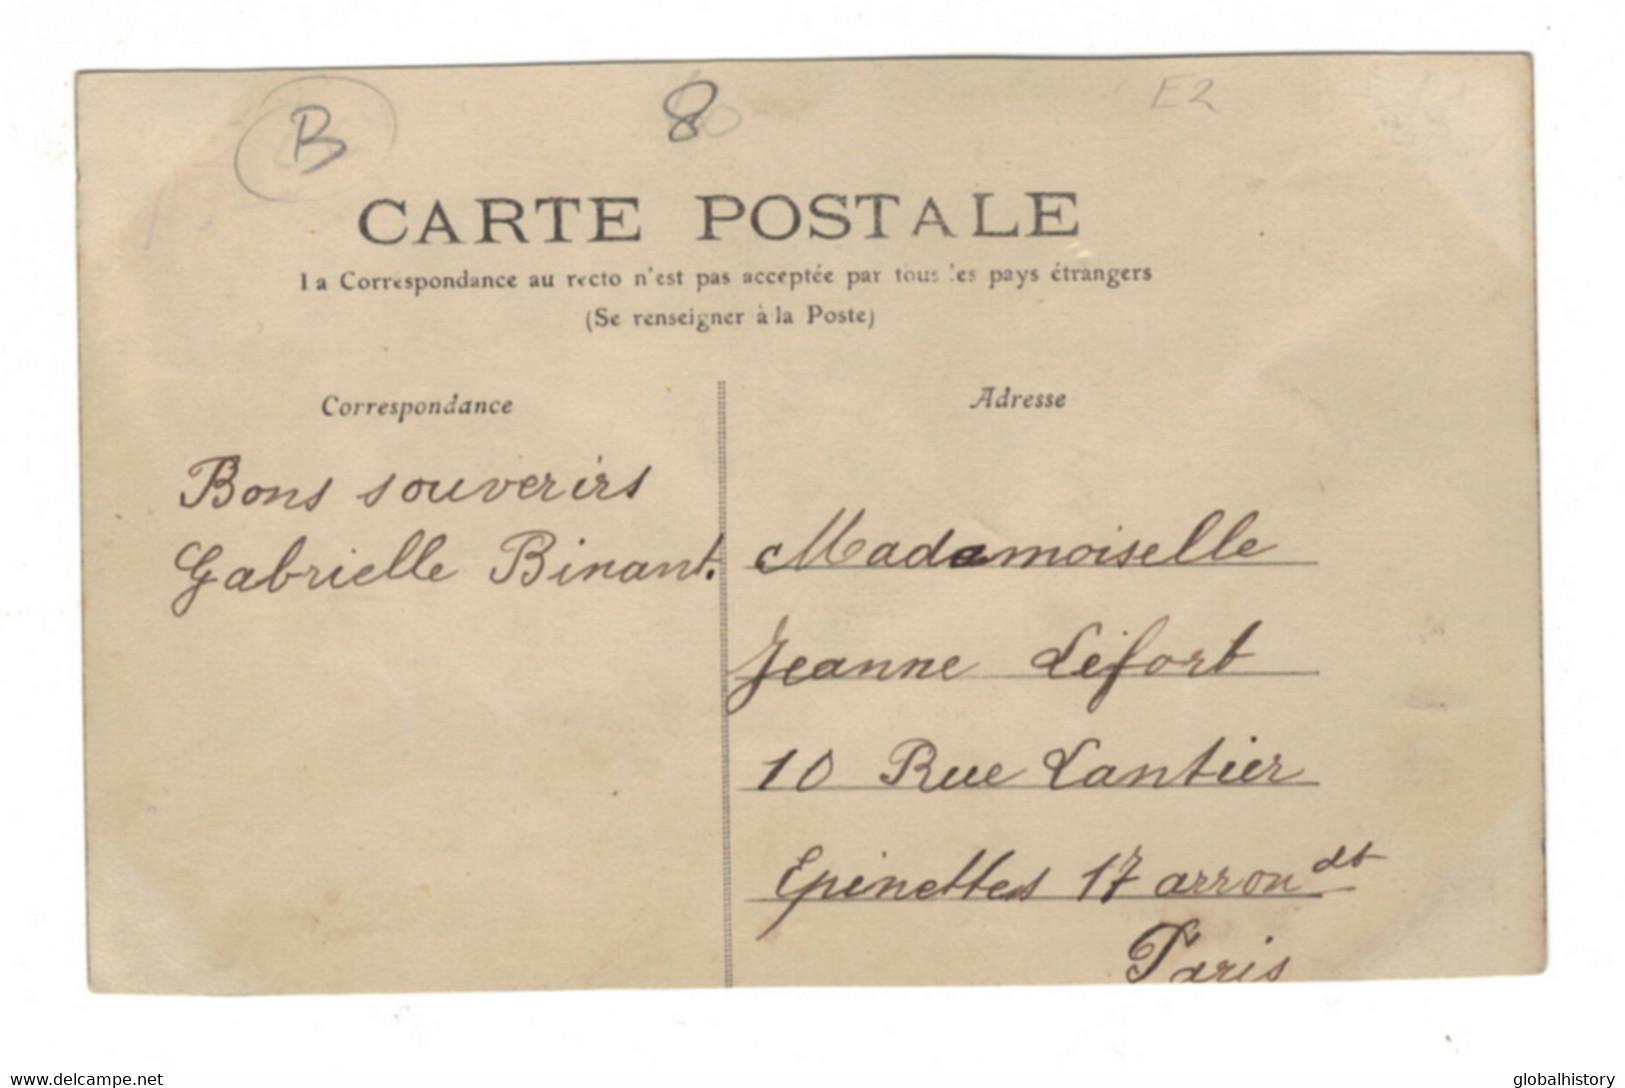 B
8
E2
CARTE POSTALE
La Correspondance au recto n'est pas acceptée par tous les pays étrangers
(Se renseigner à la Poste)
Correspondance
Bons souverirs
Gabrielle Binant.
Adresse
Mademoiselle
Jeanne Lefort
10 Rue Lantier
Epinettes 17 arrondt
Paris
www.delcampe.net
globalhistory